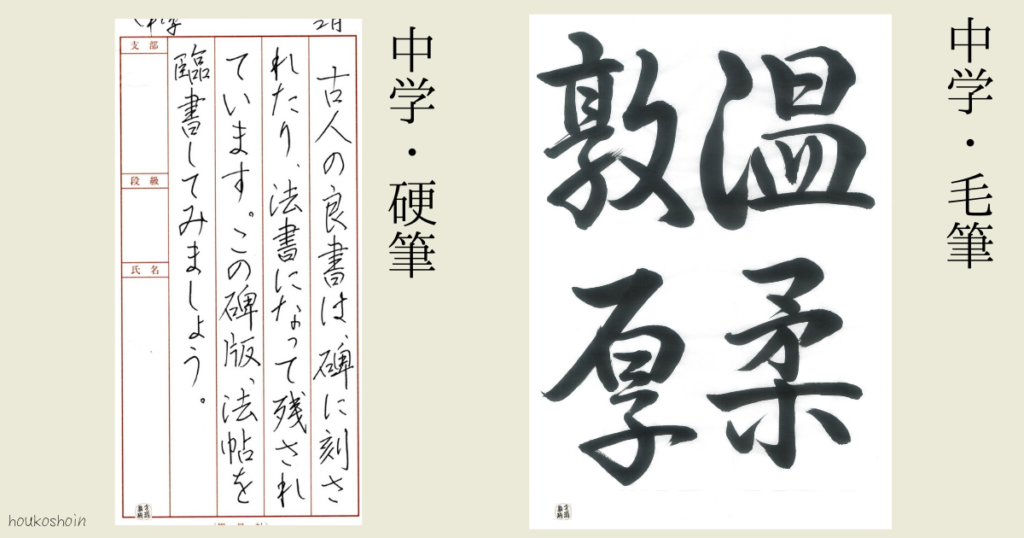 中学・毛筆
温柔
敦厚
中学・硬筆
2月
古人の良書は、碑に刻さ
れたり、法書になって残され
ています。この碑版、法帖を
臨書してみましょう。
支部
段級
氏名
houkoshoin